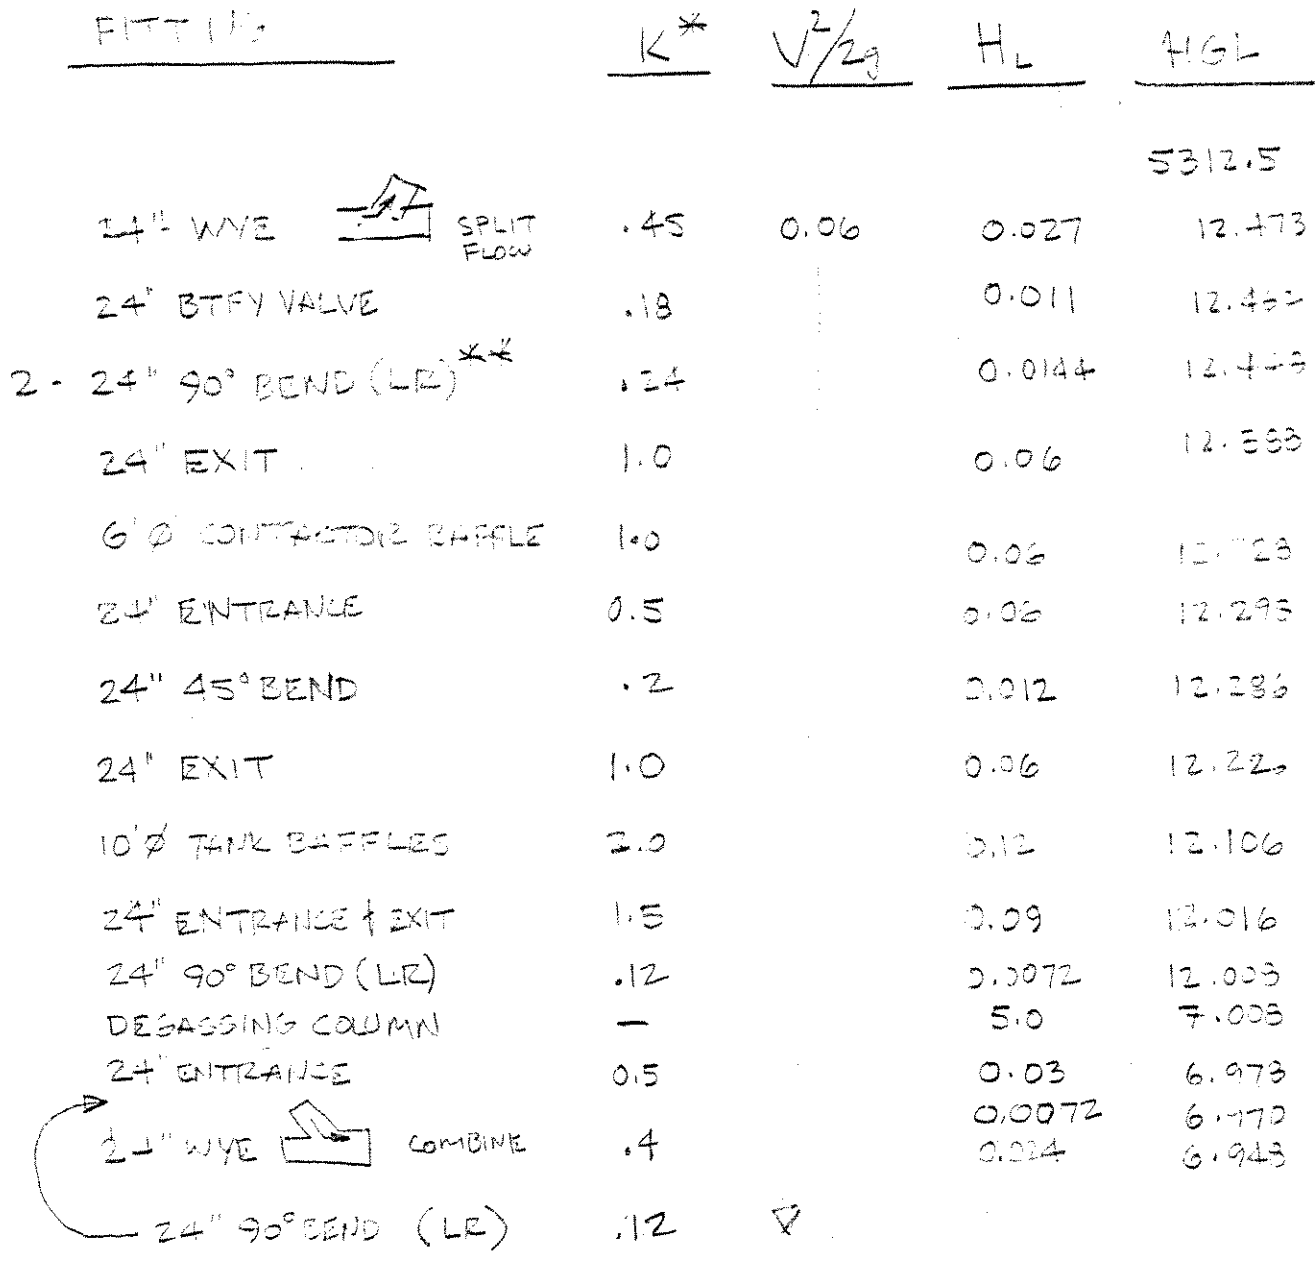 FITTING K* V²/2g HL HGL
5312.5
24" WYE SPLIT FLOW .45 0.06 0.027 12.473
24" BTFY VALVE .18 0.011
2 - 24" 90° BEND (LR)** .24 0.0144
24" EXIT 1.0 0.06
6'Ø CONTACTOR BAFFLE 1.0 0.06
24" ENTRANCE 0.5 0.06 12.293
24" 45° BEND .2 0.012 12.286
24" EXIT 1.0 0.06
10'Ø TANK BAFFLES 2.0 0.12 12.106
24" ENTRANCE & EXIT 1.5 0.09 12.016
24" 90° BEND (LR) .12 0.0072 12.003
DEGASSING COLUMN — 5.0 7.003
24" ENTRANCE 0.5 0.03 6.973
0.0072
24" WYE COMBINE .4 0.024 6.943
24" 90° BEND (LR) .12